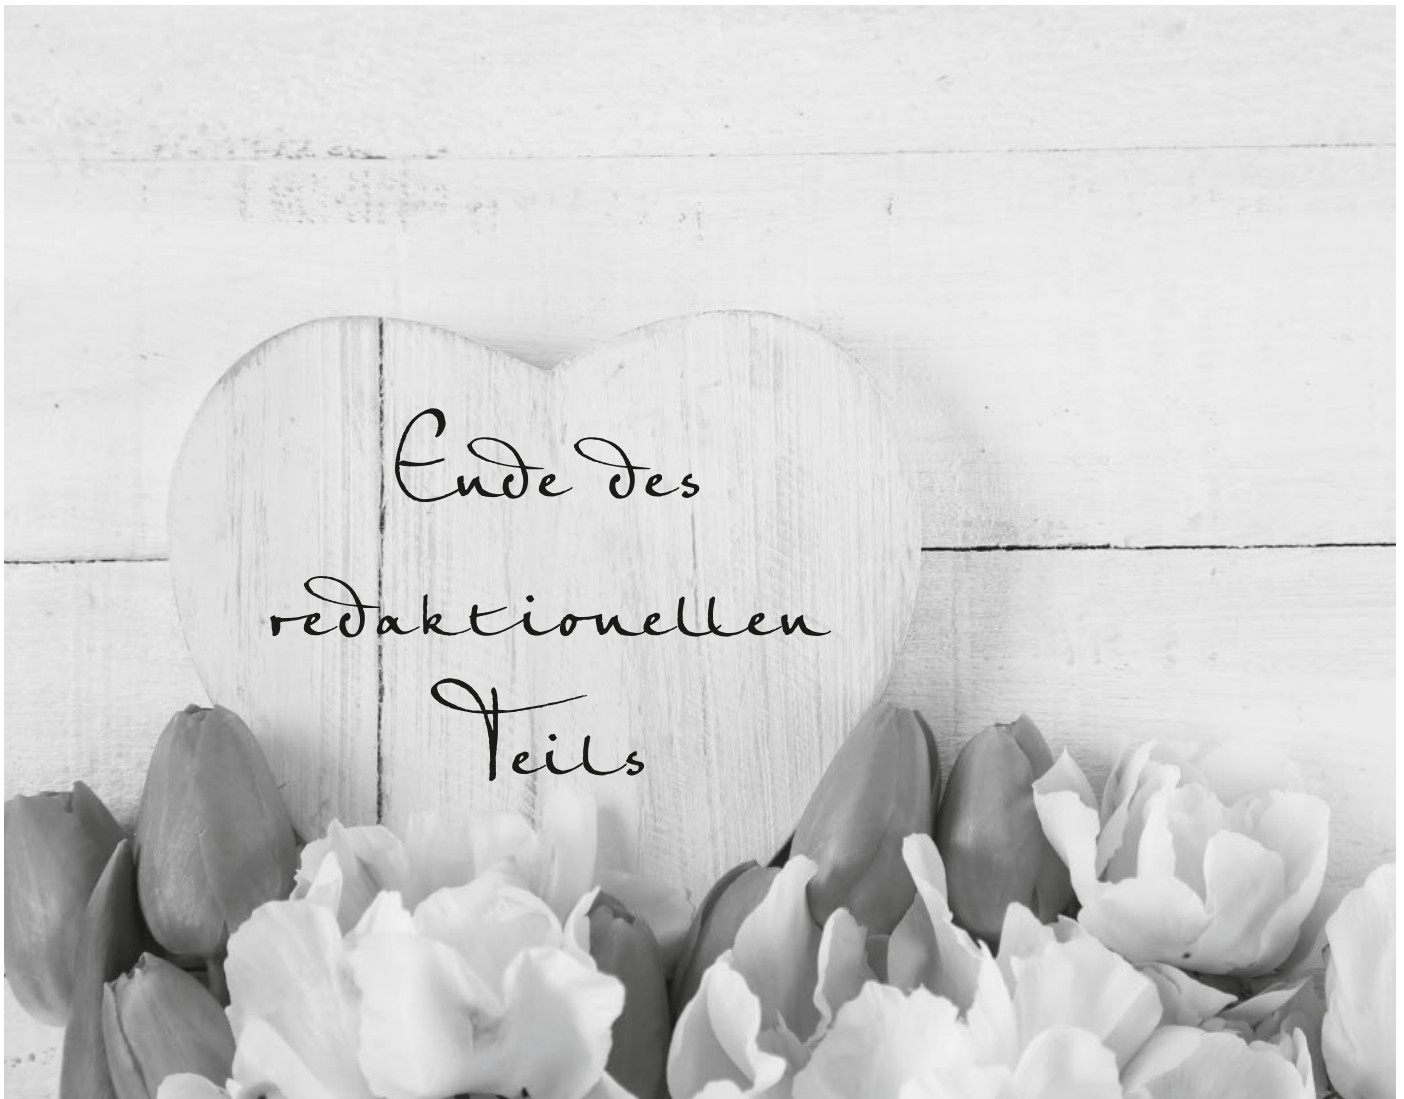 Ende des
redaktionellen
Teils